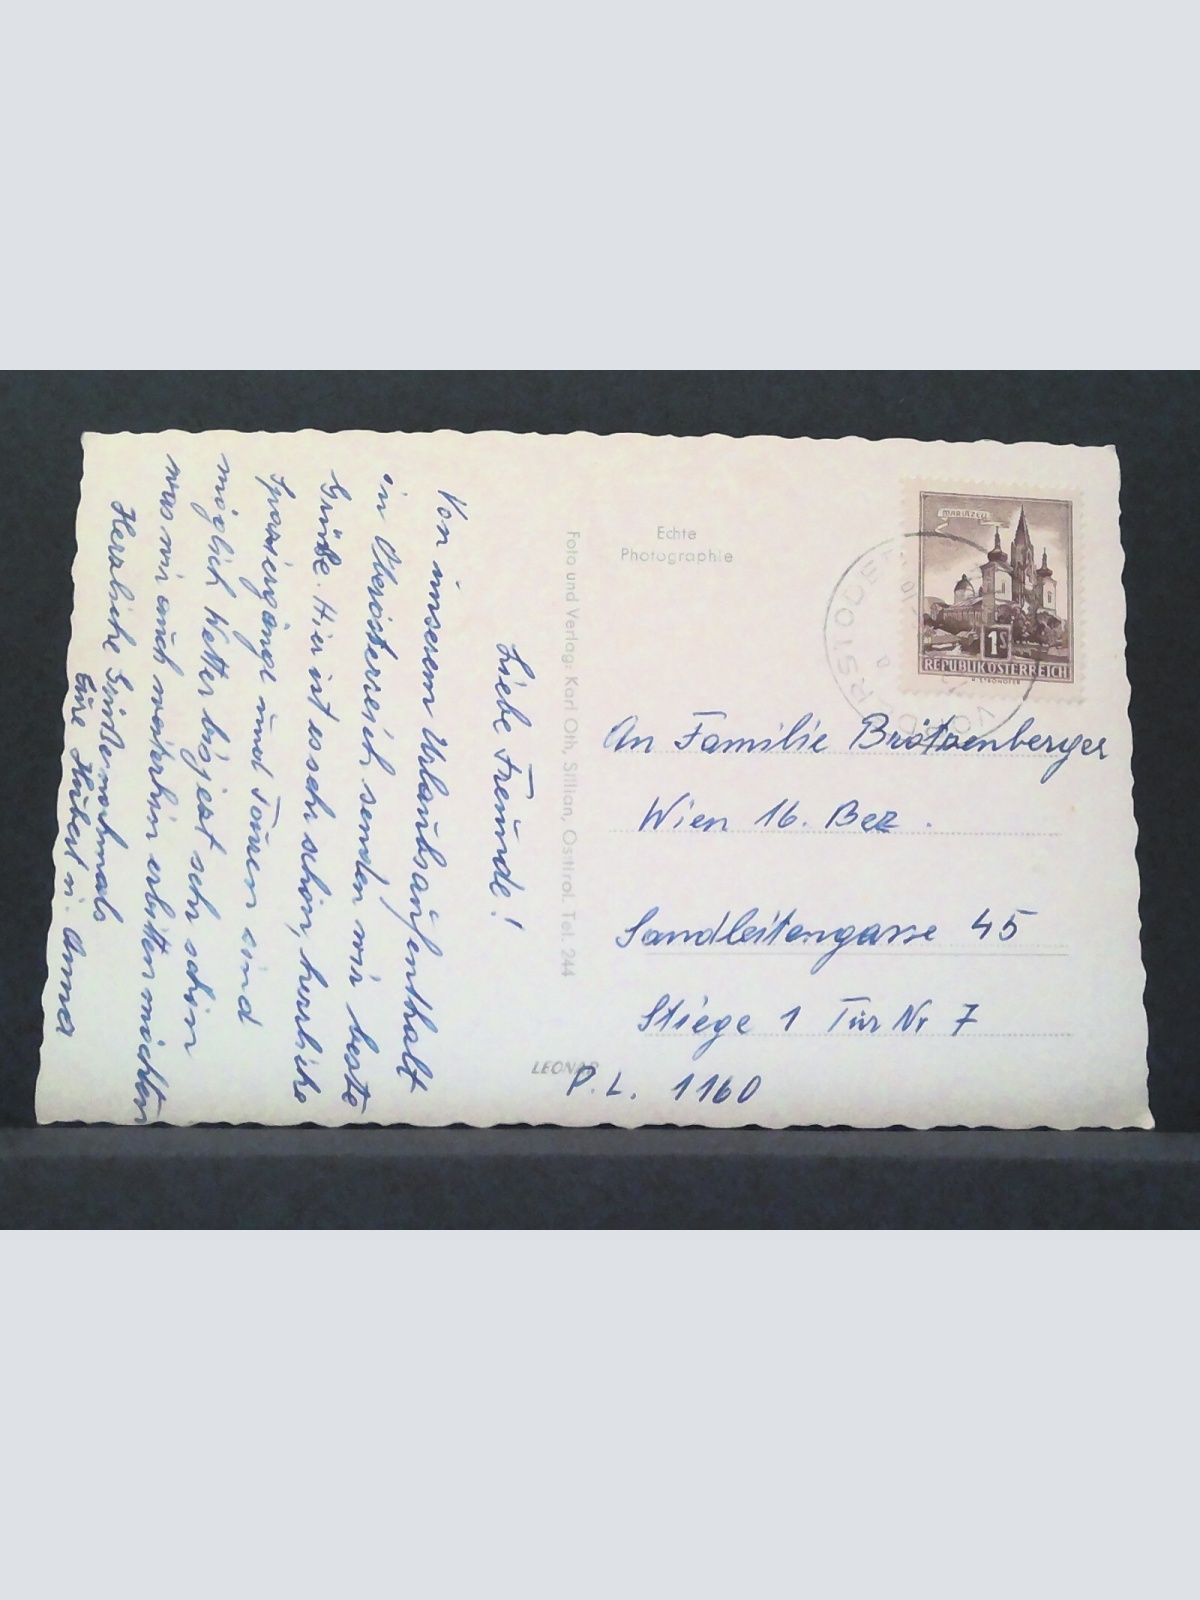 Liebe Freunde!
Von unserem Urlaubsaufenthalt
in Oberösterreich senden wir beste
Grüße. Hier ist es sehr schön, herrliche
Spaziergänge und Touren sind
möglich Wetter bis jetzt sehr schön
was wir auch weiterhin erbitten möchten
Herzliche Grüße nochmals
Eure Hubert u. Anna
Foto und Verlag: Karl Oth, Sillian, Osttirol. Tel. 244
Echte
Photographie
LEONAR
MARIAZELL
1S
REPUBLIK ÖSTERREICH
An Familie
Wien 16. Bez.
Sandleitengasse 45
Stiege 1 Tür Nr 7
P.L. 1160